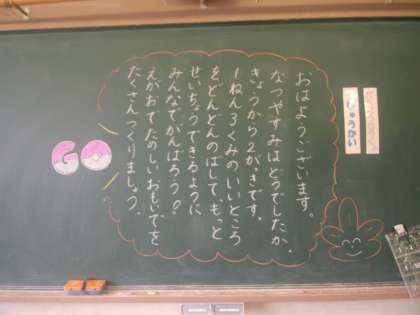 おはようございます。
なつやすみはどうでしたか。
きょうから2がきです。
1ねん3くみのいいところ
をどんどんのばして、もっと
せいちょうできるように
みんなでがんばろう！
えがおでたのしいおもいでを
たくさんつくりましょう。
GO
しゅうかい